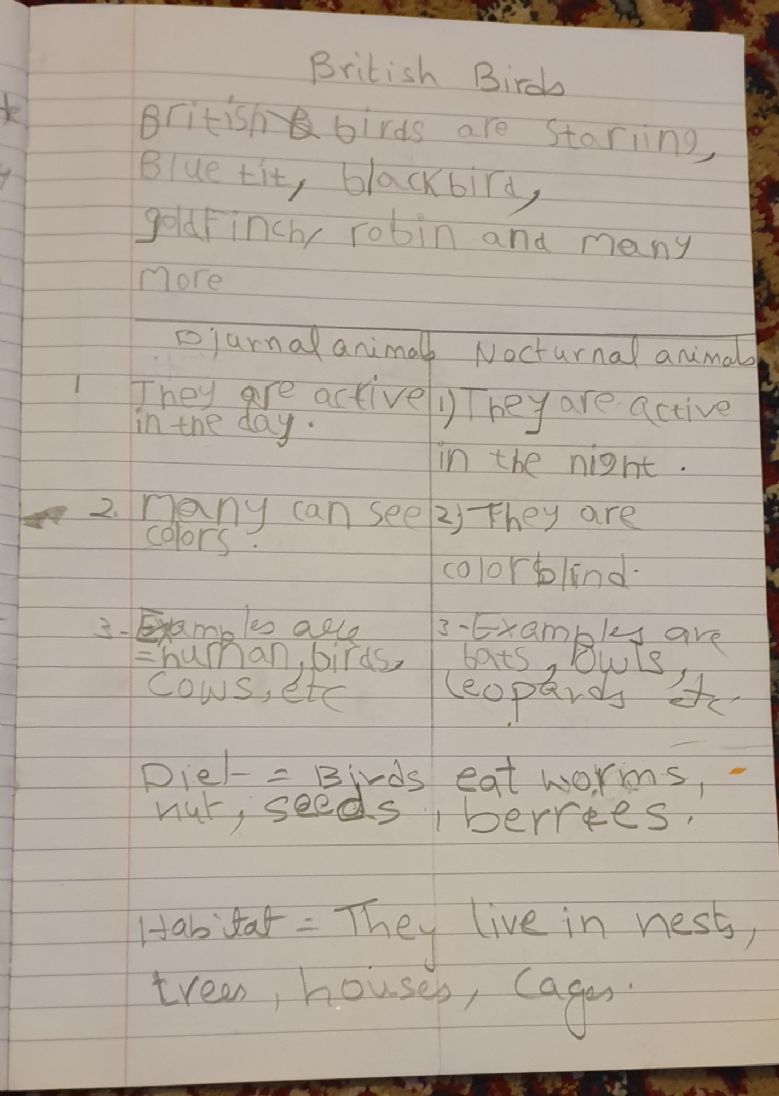 British Birds
British birds are Starling,
Blue tit, blackbird,
goldFinch, robin and many
more
Djurnal animals Nocturnal animals
1 They are active 1) They are active
in the day.
in the night.
2. Many can see 2) They are
colors.
colorblind.
3- Examples are 3-Examples are
=human, birds, bats, owls,
Cows, etc Leopards etc
Diet = Birds eat worms,
nut, seeds, berrees.
Habitat = They live in nests,
trees, houses, Cages.